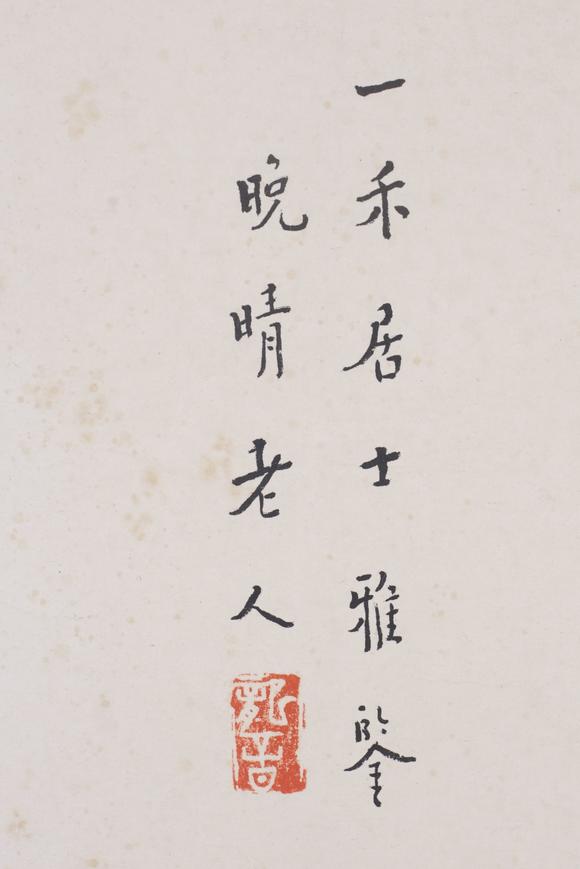 一禾居士雅鑒
晚晴老人
龍音